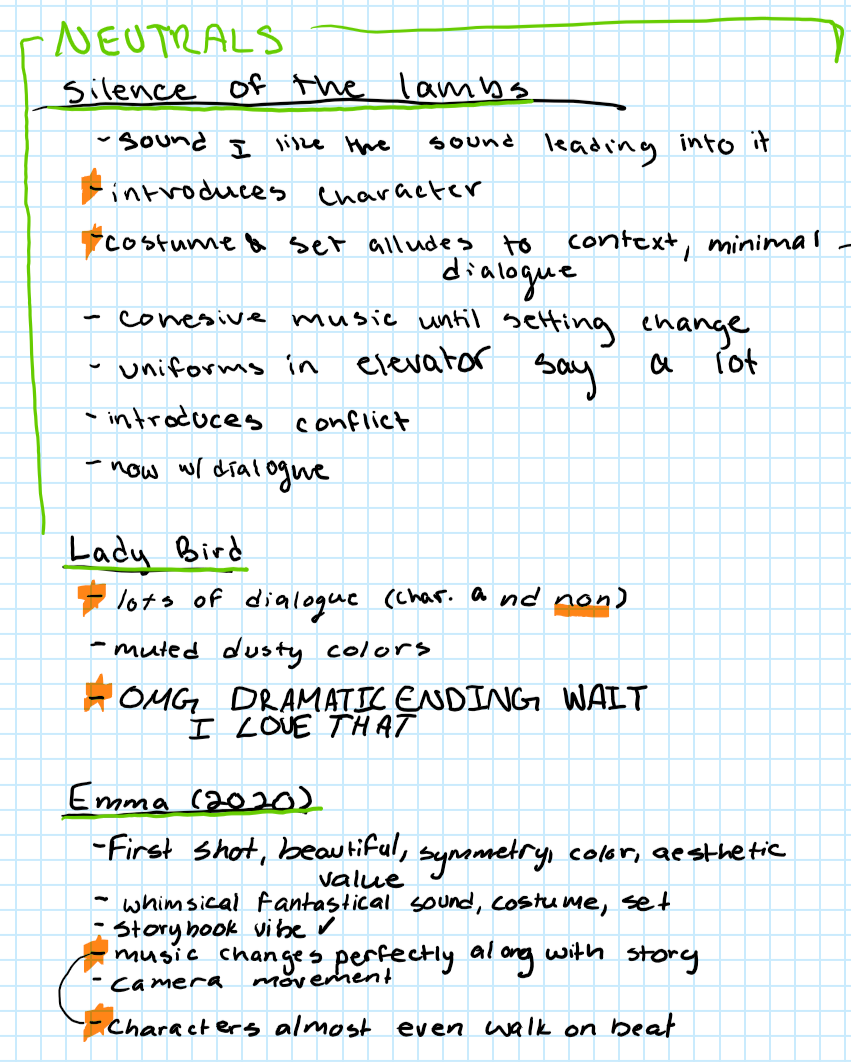 NEUTRALS
Silence of the lambs
- sound I like the sound leading into it
- introduces character
- costume & set alludes to context, minimal -
dialogue
- cohesive music until setting change
- uniforms in elevator say a lot
- introduces conflict
- now w/ dialogue
Lady Bird
- lots of dialogue (char. and non)
- muted dusty colors
- OMG DRAMATIC ENDING WAIT
I LOVE THAT
Emma (2020)
- First shot, beautiful, symmetry, color, aesthetic
value
- whimsical fantastical sound, costume, set
- storybook vibe ✓
- music changes perfectly along with story
- camera movement
- characters almost even walk on beat